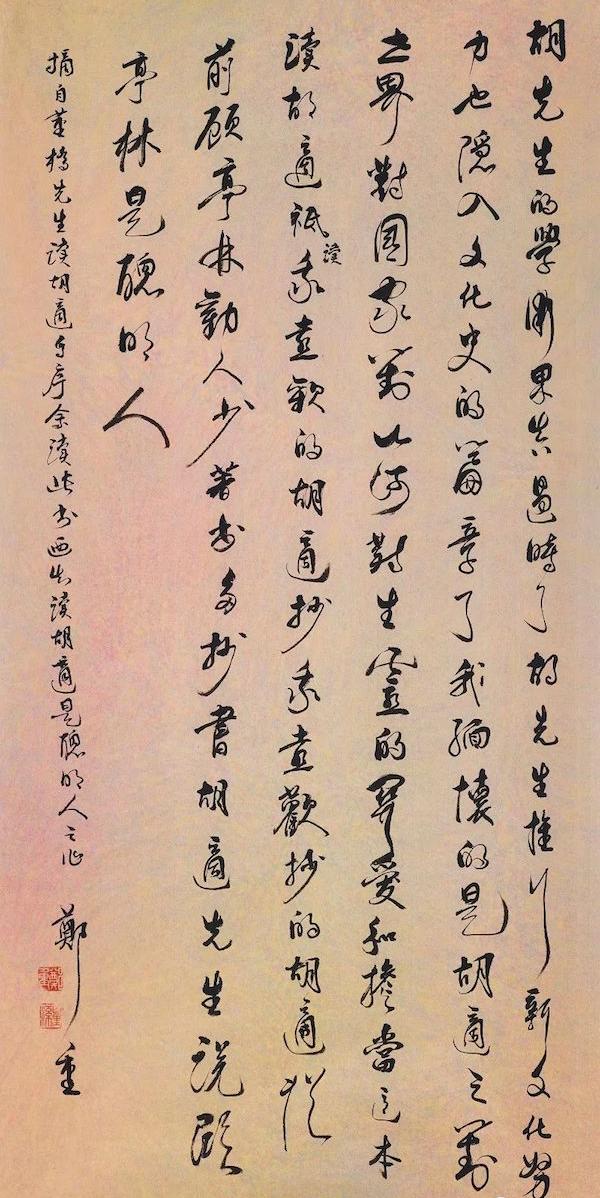 胡先生的學術果真過時了胡先生推行新文化努
力也隱入文化史的篇章了我緬懷的是胡適之對
世界對國家對山河對生靈的關愛和擔當這本
讀胡適祇讀我喜歡的胡適抄我喜歡抄的胡適從
前顧亭林勸人少著書多抄書胡適先生説顧
亭林是聰明人
摘自董橋先生讀胡適自序余讀此書西知讀胡適是聰明人之作
鄭重